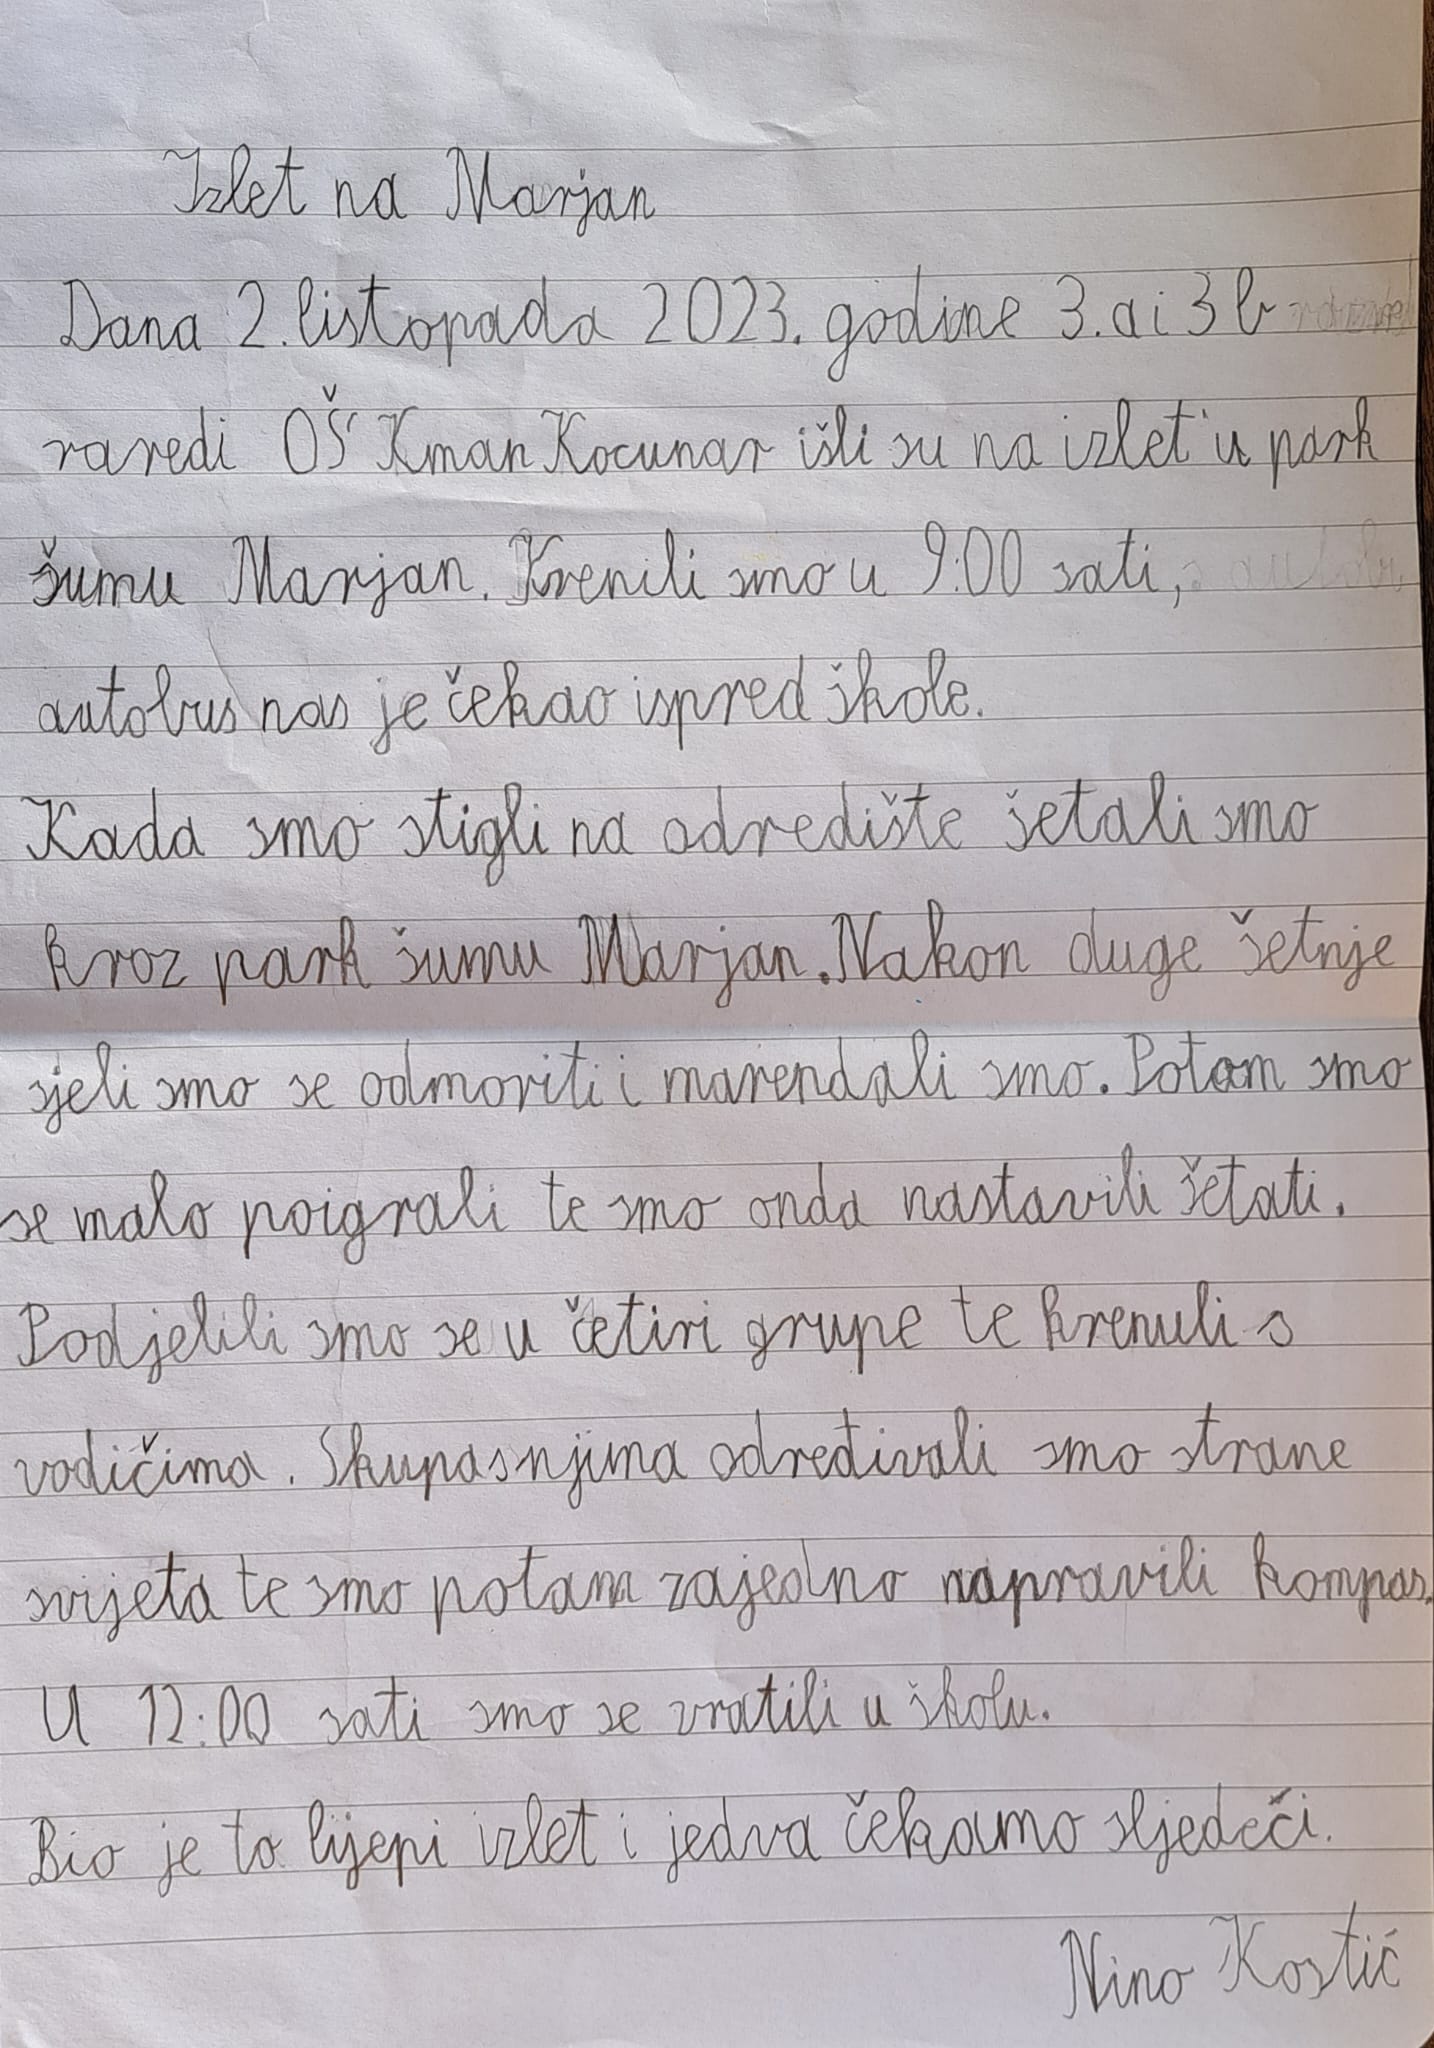 Izlet na Marjan
Dana 2. listopada 2023. godine 3. a i 3 b
raredi OŠ Kman Kocunar išli su na izlet u park
šumu Marjan. Krenili smo u 9:00 sati,
autobus nas je čekao ispred škole.
Kada smo stigli na odredište šetali smo
kroz park šumu Marjan. Nakon duge šetnje
sjeli smo se odmoriti i marendali smo. Potom smo
se malo poigrali te smo onda nastavili šetati.
Podjelili smo se u četiri grupe te krenuli s
vodičima. Skupa s njima određivali smo strane
svijeta te smo potam zajedno napravili kompas.
U 12:00 sati smo se vratili u školu.
Bio je to lijepi izlet i jedva čekamo sljedeči.
Nino Kostić